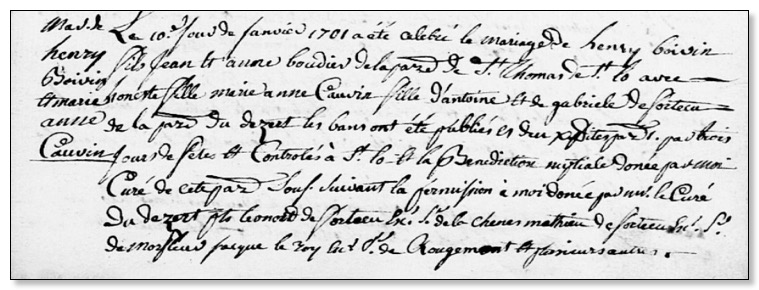 Mar. de
henry
Boivin
et marie
anne
Cauvin
Le 10e Jour de Janvier 1701 a été celebré le mariage de henry boivin
fils Jean Et anne boudier de la parr. de St. Thomas de St. lo avec
honeste fille marie anne Cauvin fille d'antoine Et de gabriele de sortecu
de la parr. du dezert les bans ont été publiés es deux parr. par trois
Jours de fetes Et Controlés à St. lo Et la Benediction nuptiale donée par moi
Curé de cete parr. Sous. suivant la permission à moi donée par mr. le Curé
du dezert pts leonord de sortecu Sr. de la chenes mathieu de sortecu Sr.
de jacque le roy Sr. de Rougemont Et plusieurs autres.